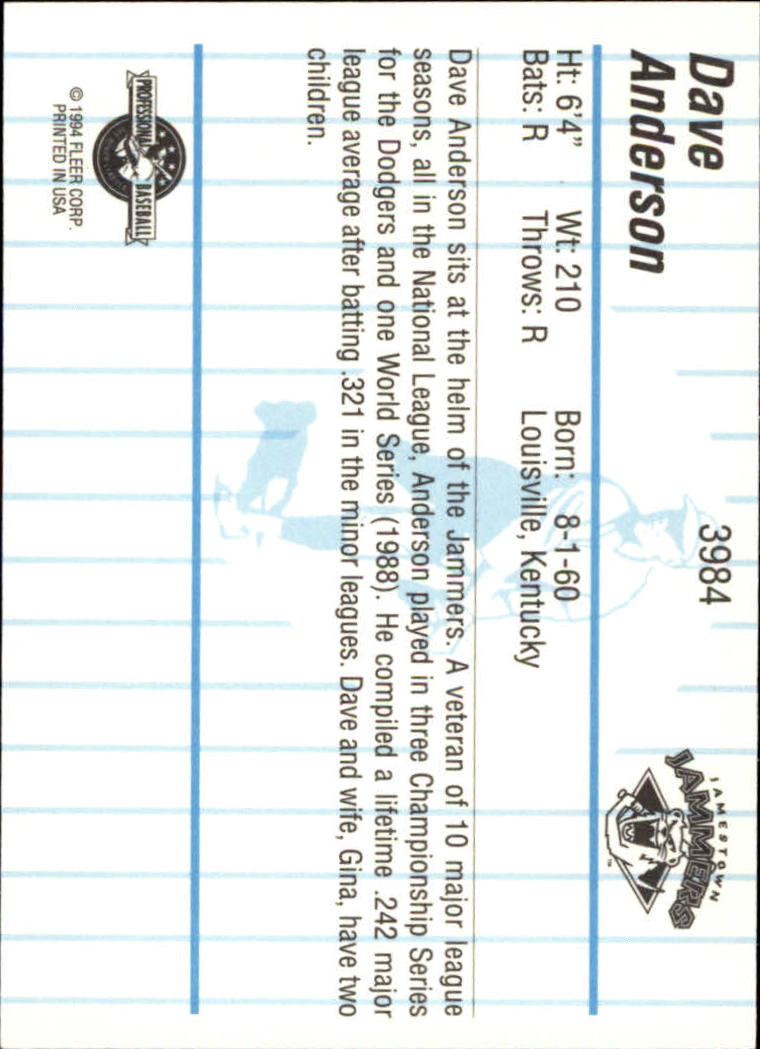 Dave
Anderson
3984
JAMESTOWN
JAMMERS
TM
Ht: 6'4" Wt: 210 Born: 8-1-60
Bats: R Throws: R Louisville, Kentucky
Dave Anderson sits at the helm of the Jammers. A veteran of 10 major league
seasons, all in the National League, Anderson played in three Championship Series
for the Dodgers and one World Series (1988). He compiled a lifetime .242 major
league average after batting .321 in the minor leagues. Dave and wife, Gina, have two
children.
PROFESSIONAL BASEBALL
© 1994 FLEER CORP.
PRINTED IN USA